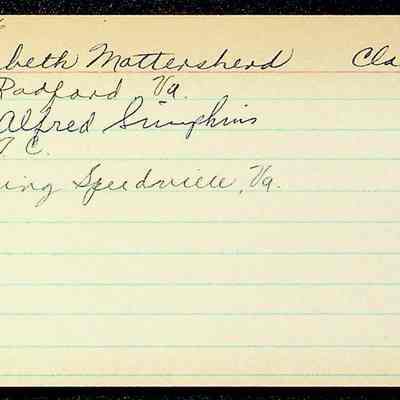 beth Mottersherd Cla
Radford Va.
Alfred Simpkins
T. C.
ing Speedville, Va.